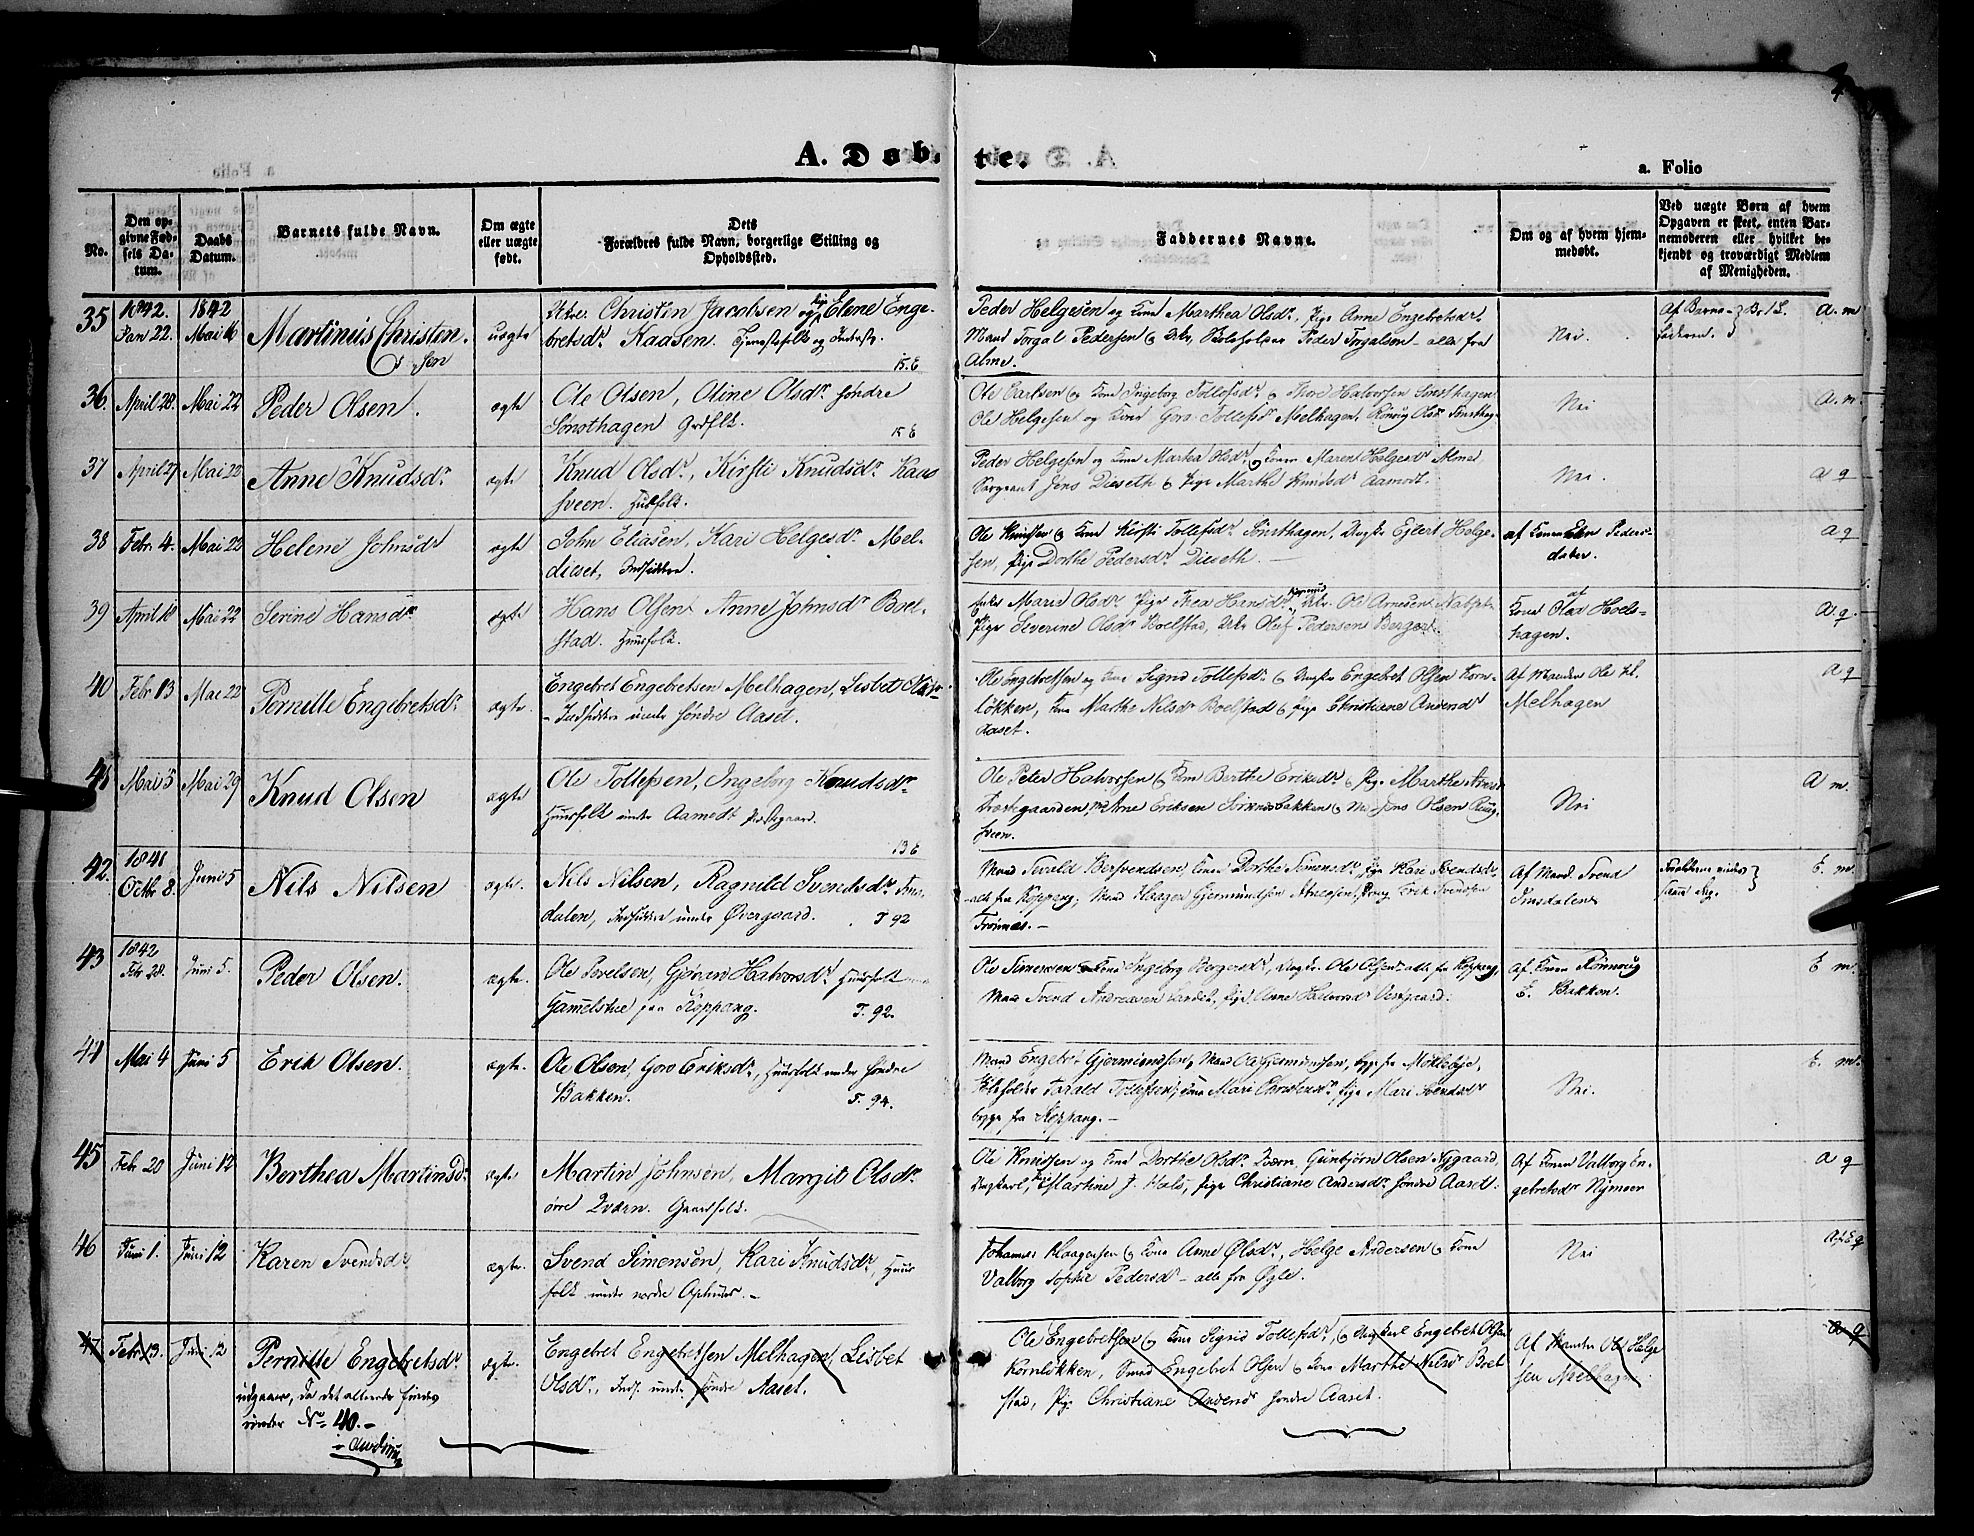 4
A. Døbte.
a. Folio
No.
Den op-
givne Fød-
sels Da-
tum.
Daabs
Datum.
Barnets fulde Navn.
Om ægte
eller uægte
født.
Dets
Forældres fulde Navn, borgerlige Stilling og
Opholdssted.
Faddernes Navne.
Om og af hvem hjem-
medøbt.
Ved uægte Børn af hvem
Opgaven er skeet, enten Bar-
nemoderen eller hvilket be-
kjendt og troværdigt Medlem
af Menigheden.
35 1842. Jan 22. 1842 Mai 16 Martinus Christen-
sen
uægte
Christen Jacobsen og Pige Elene Enge-
bretsdr. Kaasen. Tjenestefolk og
15. E
Peder Helgesen og Kone Marthea Olsdr., Pige Anne Engebretsdr.
Mand Torgal Pedersen & Peder Torgalsen - alle fra
Alme.
Nei.
Af Barne-
faderen.
a. m
36. April 28. Mai 22 Peder Olsen. ægte
Ole Olsen, Oline Olsdr. søndre
Sønsthagen Grdflk.
15 E
Ole Carlsen & Kone Ingeborg Tollefsdr. & Thore Halvorsen Sønsthagen
Ole Helgesen og Kone Goro Tollefsd Melhagen, Rønnug Olsdr Sønsthag.
Nei
a. m.
37 April 27 Mai 22 Anne Knudsdr. ægte
Knud Olsdr., Kirsti Knudsdr. Kaas
sveen. Husfolk.
Peder Helgesen og Kone Marthea Olsdr. & Kone Maren Helgesdr Alme,
Sergeant Jens Diseth & Pige Marthe Knudsdr Aamodt.
Nei.
a q
38 Febr. 4. Mai 22 Helene Johnsdr ægte
John Eliasen, Kari Helgesdr. Mel-
dieset, Indsiddere.
Ole Knudsen & Kone Kirsti Tollefsdr. Sønsthagen, Ungkr Ejlert Helge-
sen, Pige Dorthe Pedersdr. Diseth. —
af Konen Elen Peders-
dater.
a q
39 April 18 Mai 22 Serine Hansdr. ægte
Hans Olsen Anne Johnsdr Boel-
stad. Huusfolk.
Enke Marie Olsdr. Pige Thea Hansdr. Ole Arnesen
Pige Severine Olsdr Boelstad, Oluf Pedersen Berger.
Kone Olea Hoels-
hagen.
a q.
40 Febr 13 Mai 22 Pernille Engebretsdr. ægte.
Engebret Engebretsen Melhagen, Lisbet Olsdr.
- Indsiddere under søndre Aaset.
Ole Engebretsen og Kone Sigrid Tollefsdr. & Ungkr Engebret Olsen Korn-
løkken, Kone Marthe Nilsdr Boelstad & Pige Christiane Andersdr
Aaset.
Af Manden Ole H.
Melhagen
a q
41 Mai 3 Mai 29 Knud Olsen ægte
Ole Tollefsen, Ingeborg Knudsdr.
Huusfolk under Aamodt Præstegaard.
13 E
Ole Peter Halvorsen & Kone Berthe Eriksdr & Pige Marthe
Præstgaarden, Arne Eriksen bakken & Jens Olsen Ryg-
sveen.
Nei
a m.
42. 1841 Octbr 8. Juni 5 Nils Nilsen ægte.
Nils Nilsen, Ragnild Svendsdr. Ims-
dalen, Indsiddere under Øvergaard. T 92
Mand Sevald Bersvendsen, Kone Dorthe Simensdr, Pige Kari Svendsdr,
alle fra Koppang, Mand Haagen Gjermundsen Atneosen, Erik Svendsen
Trønnes. -
Af Mand Svend
Imsdalen
E. m
43 1842 Febr 28. Juni 5. Peder Olsen. ægte.
Ole Povelsen, Gjøran Halvorsdr. Huusfolk
Gamelstue paa Koppang. T. 92.
Ole Simensen & Kone Ingeborg Bergersdr, Ungkr. Ole Olsen alle fra Koppang,
Mand Svend Andreasen Landet, Pige Anne Halvorsdr Vestgaard.
Af Konen Rønnoug
E. Bakken.
E m.
44 Mai 4 Juni 5 Erik Olsen. ægte.
Ole Olsen, Goro Eriksdr., Huusfolk under Søndre
Bakken. T. 94.
Mand Engebret Gjermundsen, Mand Ole Gjermundsen, begge fra Møkleby,
Tarald Tollefsen, Kone Mari Christensdr., Pige Mari Svendsdr
begge fra Koppang. -
Nei.
E. m.
45 Febr. 20 Juni 12 Berthea Martinsd. ægte.
Martin Johnsen, Margit Olsdr.
øvre Qværn. Gaardfolk.
Ole Knudsen og Kone Dorthe Olsdr. Qværn, Gunbjørn Olsen Nygaard,
Ungkarl, Martine J. Hols, Pige Christiane Andersdr. søndre Aaset.
Af Konen Valborg En-
gebretsdr Nymoen
a q
46 Juni 1. Juni 12 Karen Svendsdr ægte.
Svend Simensen, Kari Knudsdr., Huus
folk under nordre Ophuus. -
Johannes Haagensen & Kone Anne Olsdr., Helge Andersen & Kone
Valborg Sophie Pedersd - alle fra Øgle.
Nei
47 Febr 13. Juni 12 Pernille Engebretsdr. ægte.
udgaaer, da det allerede findes
under No. 40. -
Engebret Engebretsen Melhagen, Lisbet
Olsdr., Inds. under søndre Aaset.
Ole Engebretsen & Kone Sigrid Tollefsdr., & Ungkarl Engebret Olsen
Kornløkken, Engebret Olsen & Kone Marthe Nilsdr Boel
stad, Pige Christiane Andersdr søndre Aaset.
Af Manden Ole Helge
sen Melhagen
a q